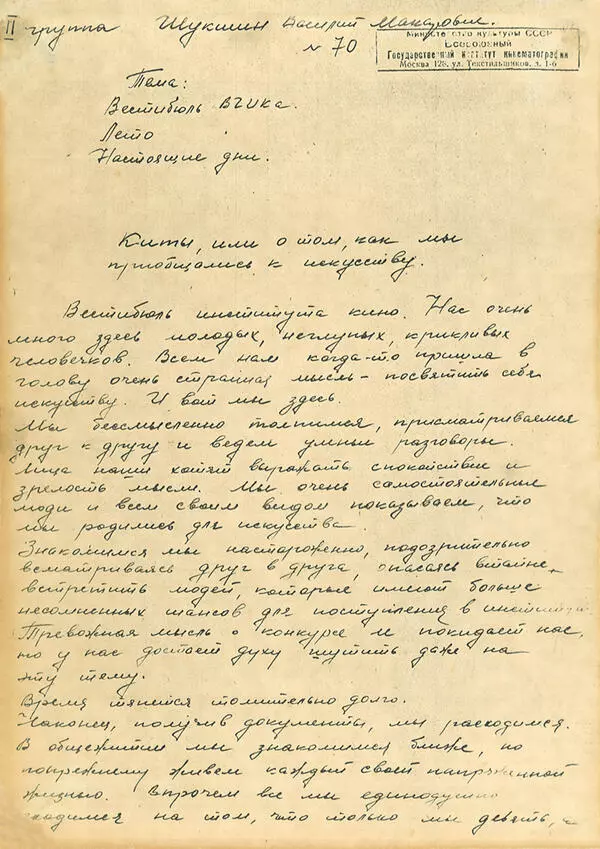 II группа Шукшин Василий Макарович.
№ 70
Министерство культуры СССР
Всесоюзный
Государственный институт кинематографии
Москва 128, ул. Текстильщиков, д. 1-б
Тема:
Вестибюль ВГИКа.
Лето
Настоящие дни.
Киты, или о том, как мы
приобщались к искусству.
Вестибюль института кино. Нас очень
много здесь молодых, неглупых, крикливых
человечков. Всем нам когда-то пришла в
голову очень странная мысль - посвятить себя
искусству. И вот мы здесь.
Мы бессмысленно толпимся, присматриваемся
друг к другу и ведем умные разговоры.
Лица наши хотят выражать спокойствие и
зрелость мысли. Мы очень самостоятельные
люди и всем своим видом показываем, что
мы родились для искусства.
Знакомимся мы настороженно, подозрительно
всматриваясь друг в друга, опасаясь втайне
встретить людей, которые имеют больше
несомненных шансов для поступления в институт.
Тревожная мысль о конкурсе не покидает нас,
но у нас достает духу шутить даже на
эту тему.
Время тянется томительно долго.
Наконец, получив документы, мы расходимся.
В общежитии мы знакомимся ближе, но
попрежнему живем каждый своей напряженной
жизнью. Впрочем все мы единодушно
сходимся на том, что только мы девять,